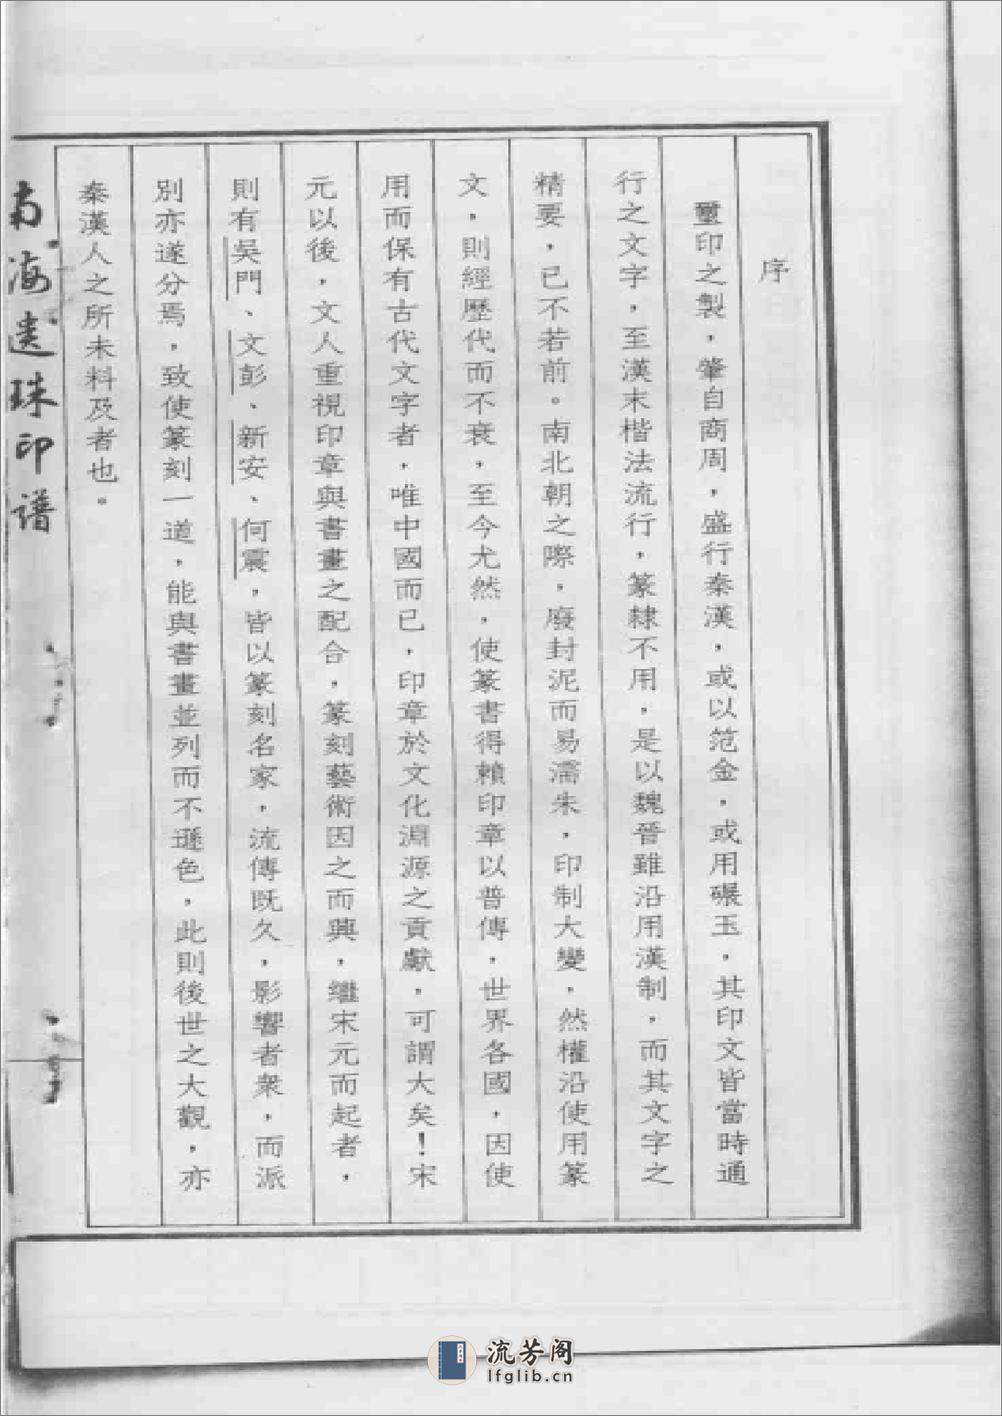 序
璽印之製，肇自商周，盛行秦漢，或以范金，或用碾玉，其印文皆當時通
行之文字，至漢末楷法流行，篆隸不用，是以魏晉雖沿用漢制，而其文字之
精要，已不若前。南北朝之際，廢封泥而易濡朱，印制大變，然權沿使用篆
文，則經歷代而不衰，至今尤然，使篆書得賴印章以普傳，世界各國，因使
用而保有古代文字者，唯中國而已，印章於文化淵源之貢獻，可謂大矣！宋
元以後，文人重視印章與書畫之配合，篆刻藝術因之而興，繼宋元而起者，
則有吳門、文彭、新安、何震，皆以篆刻名家，流傳既久，影響者衆，而派
別亦遂分焉，致使篆刻一道，能與書畫並列而不遜色，此則後世之大觀，亦
秦漢人之所未料及者也。
南海遺珠印譜
流芳阁
lfglib.cn